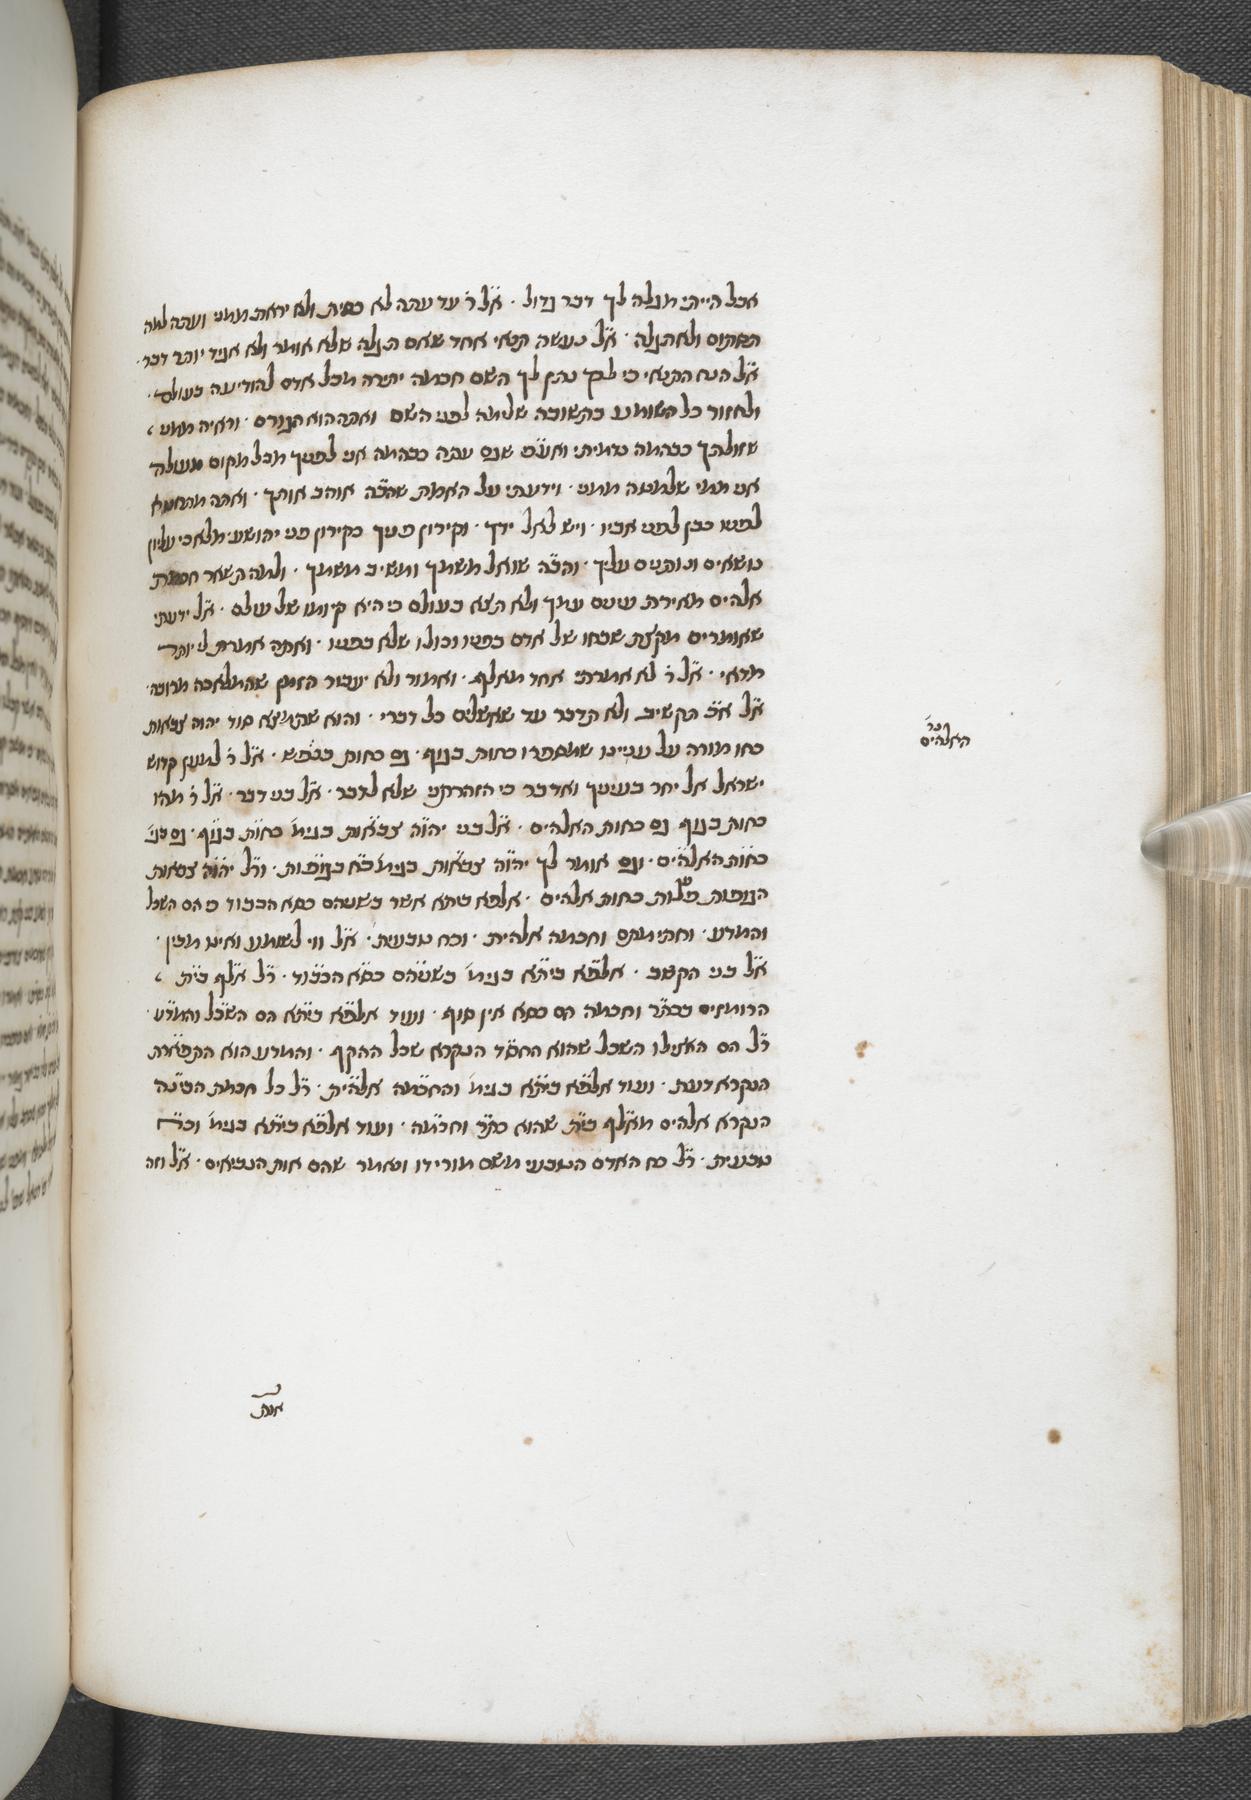 אבל הייתי מגלה לך דבר גדול · א̈ל ר̇ עד עתה לא כסית ולא יראת ממני ועתה למה
תסתום ולא תגלה · א̈ל נעשה תנאי אחד שאם תגלה שלא אומר ולא אגיד יותר דבר ·
א̈ל הנה התנאי כי לכך נתן לך השם חכמה יתירה מכל אדם להודיעה בעולם ·
ולחזור כל השומע בתשובה שלימה לפני השם ואתה הוא הגורם · וראיה ממני
שזולתך כבהמה נדמיתי ואע̈פ שגם עתה כבהמה אני לפניך מכל מקום מעולה
אני ממי שלמטה ממני · וידעתי על האמת שהב̈ה אוהב אותך · ואתה מתחטא
לפניו כבן לפני אביו · ויש לאל ידך · וקירון פניך כקירון פני יהושע מלאכי עליון
נושאים ונותנים עליך · והב̈ה שואל משמך ומשיב משמך · ולמה תשאר חכמת
אלהים מאירת עינים עמך ולא תצא בעולם כי היא קיומו של עולם · א̈ל ידעתי
שאומרים מקצת שבחו של אדם בפניו וכולו שלא בפניו · ואתה אמרת לי יותר
מדאי · א̈ל ר̇ לא אמרתי אחד מאלף · ואמור ולא יעבור הזמן שהמלאכה מרובה ·
א̈ל א̈כ הקשיב ולא תדבר עד שאשלים כל דברי · והוא שתמצא סוד יהוה צבאות
כחו מורה על עניינו שמספרו כחות בגוף · גם כחות בנפש · א̈ל ר̇ למען קדוש
ישראל אל יחר בעיניך ואדבר כי הזהרתני שלא לדבר · א̈ל בני דבר · א̈ל ר̇ מהו
כחות בגוף גם כחות האלהים · א̈ל בני יהו̈ה צבא̈ות בגימ̇ כחו̈ת בגו̈ף · גם כן
כחו̈ת האלהי̈ם · וגם אומר לך יהו̈ה צבא̈ות בגימ̇ ב̈א בגופו̈ת · ור̈ל יהו̈ה צבאות
הגופות פעלות כחות אלהים · אלפא ביתא אשר בשניהם כסא הכבוד כי הם השכל
והמדע · וחתימתם וחכמה אלהית · וכח טבעית · א̈ל ווי לשומע ואינו מבין ·
א̈ל בני הקשב · אלפ̈א בית̈א בגימ̇ בשניה̈ם כס̈א הכבו̈ד · ר̈ל אל̈ף בי̈ת
הרומזים בכת̈ר וחכמה הם כסא אין סוף · ועוד אלפ̈א בית̈א הם השכ̈ל והמד̈ע ·
ר̈ל הם האצילו השכל שהוא החס̈ד הנקרא שכל ההקף · והמדע הוא התפאר̈ת
הנקרא דעת · ועוד אלפ̈א בית̈א בגימ̇ והחכמ̈ה אלהי̈ת · ר̈ל כל חכמת הבינ̈ה
הנקרא אלהים מאל̈ף בי̈ת שהוא כת̈ר וחכמ̈ה · ועוד אלפ̈א בית̈א בגימ̇ וכ̈ח
טבעית · ר̈ל כח האדם הטבעי משם מורידו ואמר שהם אות הנביאים · א̈ל וזה
האלהים
אות